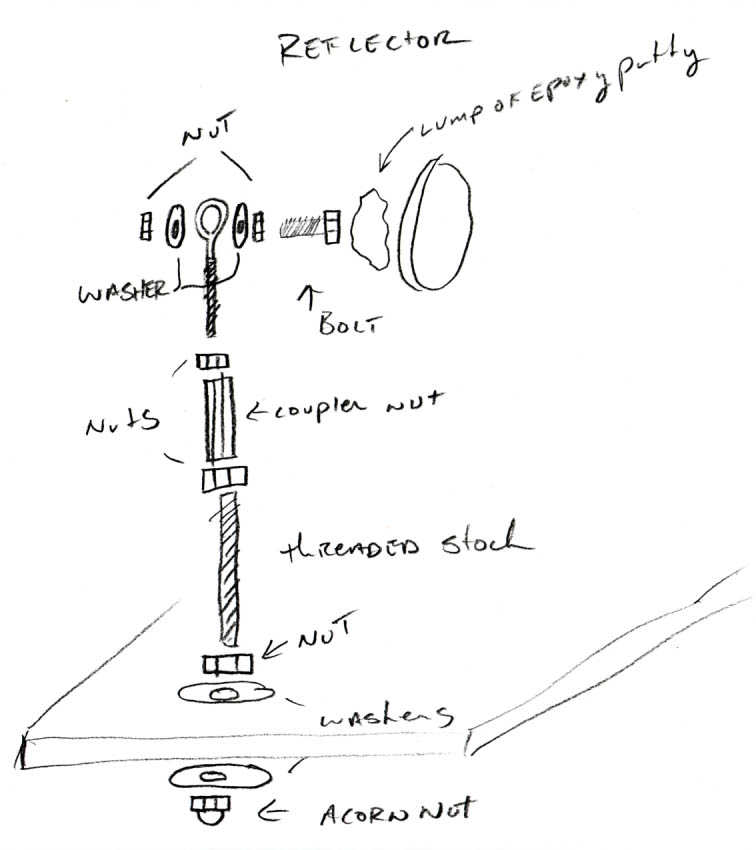 REFLECTOR
LUMP OF EPOXY putty
NUT
WASHER
BOLT
Nuts
coupler nut
threaded stock
NUT
washers
ACORN NUT